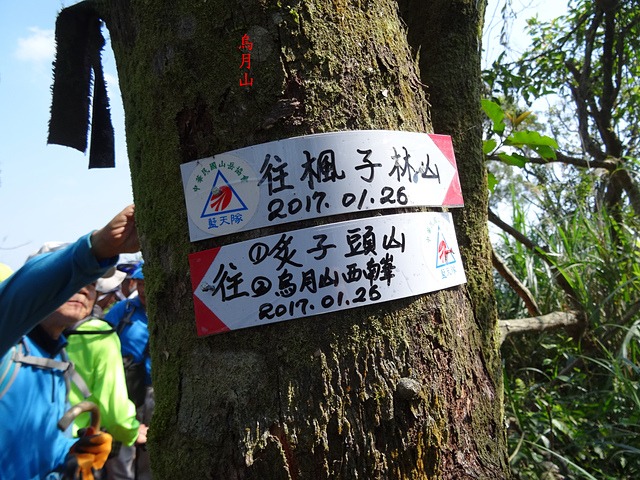 烏月山
中華民國山岳協會
藍天隊
往楓子林山
2017.01.26
往
①炙子頭山
②烏月山西南峯
2017.01.26